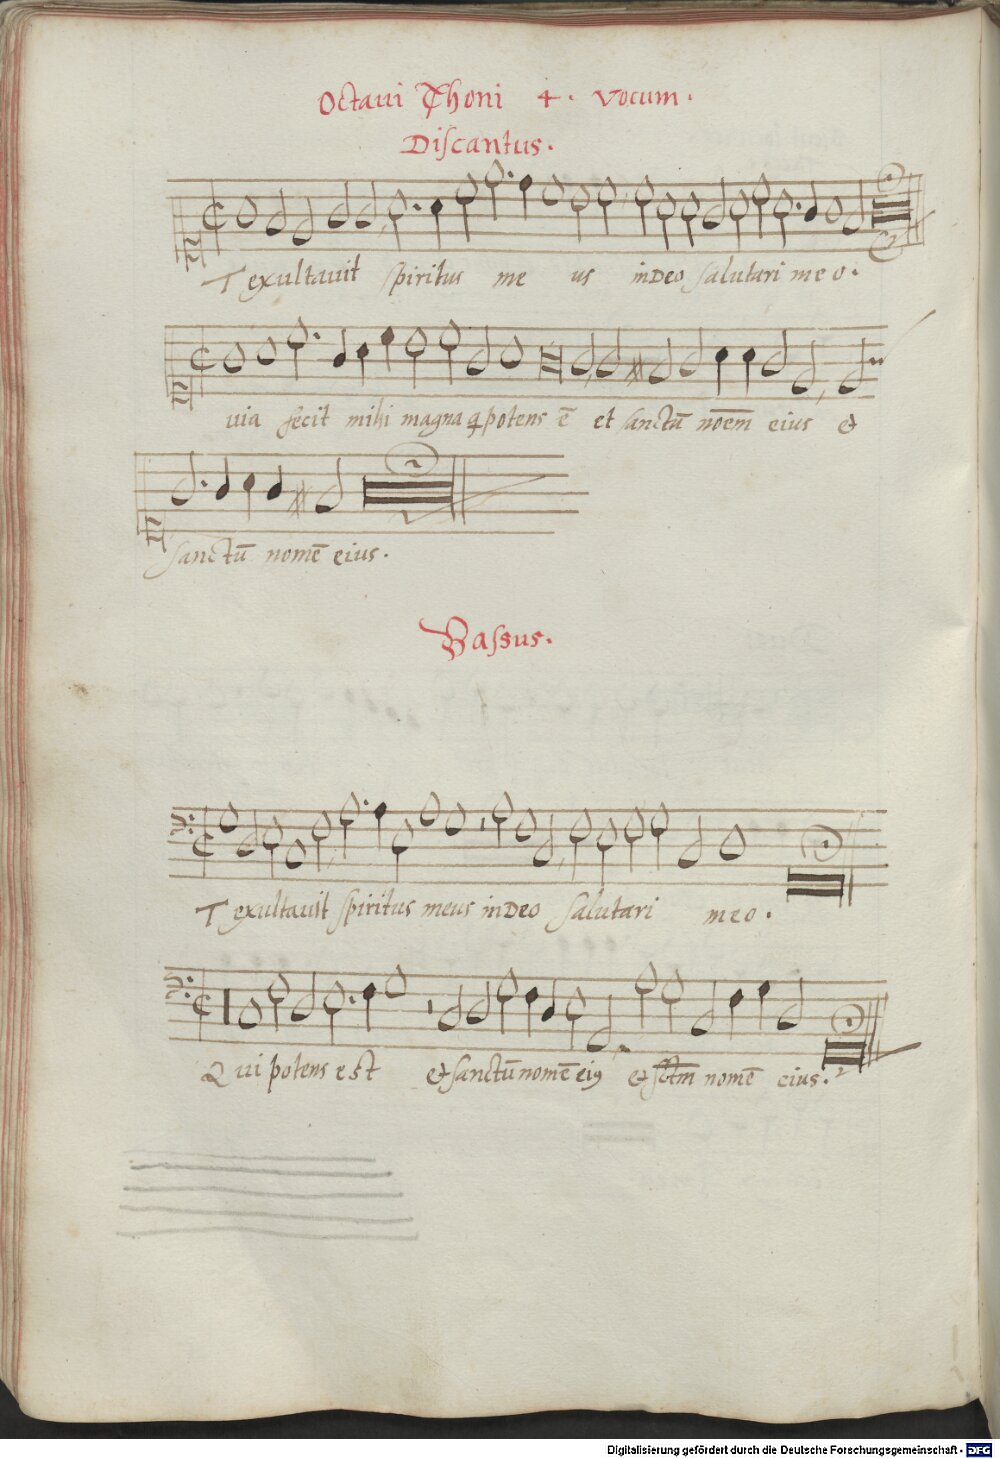 Octaui Thoni 4. Vocum.
Discantus.
T exultauit spiritus me us in Deo salutari meo.
uia fecit mihi magna q potens ē et sanctū noēm eius et
sanctū nomē eius.
Bassus.
T exultauit spiritus meus in Deo salutari meo.
Qui potens est et sanctū nomē ei9 et sctm nomē eius.
Digitalisierung gefördert durch die Deutsche Forschungsgemeinschaft - DFG